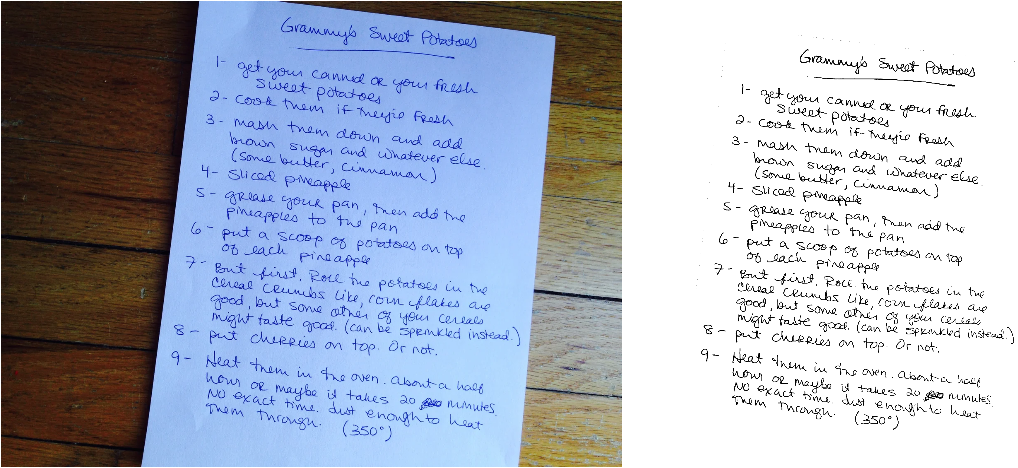 Grammy's Sweet Potatoes
1- get your canned or your fresh
sweet potatoes
2- cook them if they're fresh
3- mash them down and add
brown sugar and whatever else.
(some butter, cinnamon)
4- sliced pineapple
5- grease your pan, then add the
pineapples to the pan
6- put a scoop of potatoes on top
of each pineapple
7- But first, Roll the potatoes in the
cereal crumbs like, corn flakes are
good, but some other of your cereals
might taste good. (can be sprinkled instead.)
8- put cherries on top. Or not.
9- Heat them in the oven. about a half
hour or maybe it takes 20 minutes.
No exact time. Just enough to heat
them through. (350°)
Grammy's Sweet Potatoes
1- get your canned or your fresh
sweet potatoes
2- cook them if they're fresh
3- mash them down and add
brown sugar and whatever else.
(some butter, cinnamon)
4- sliced pineapple
5- grease your pan, then add the
pineapples to the pan
6- put a scoop of potatoes on top
of each pineapple
7- But first, Roll the potatoes in the
cereal crumbs like, corn flakes are
good, but some other of your cereals
might taste good. (can be sprinkled instead.)
8- put cherries on top. Or not.
9- Heat them in the oven. about a half
hour or maybe it takes 20 minutes.
No exact time. Just enough to heat
them through. (350°)